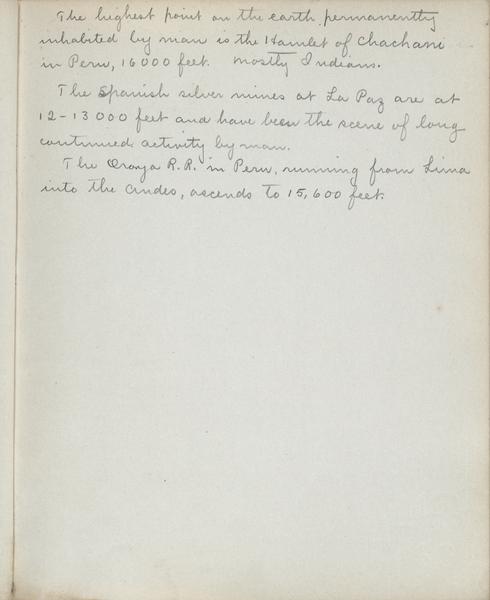 The highest point on the earth permanently
inhabited by man is the Hamlet of Chachani
in Peru, 16000 feet. Mostly Indians.
The Spanish silver mines at La Paz are at
12-13000 feet and have been the scene of long
continued activity by man.
The Oroya R.R. in Peru, running from Lima
into the Andes, ascends to 15,600 feet.